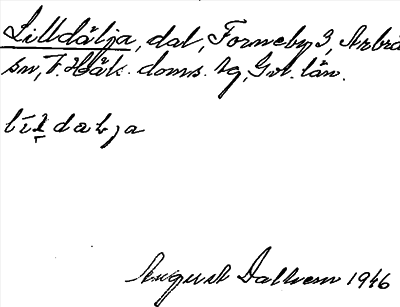 Lilldälja, dal, Forneby 3, Arbrå
sn, V. Häls. doms. tg, Gvl. län.
August Dalhem 1946